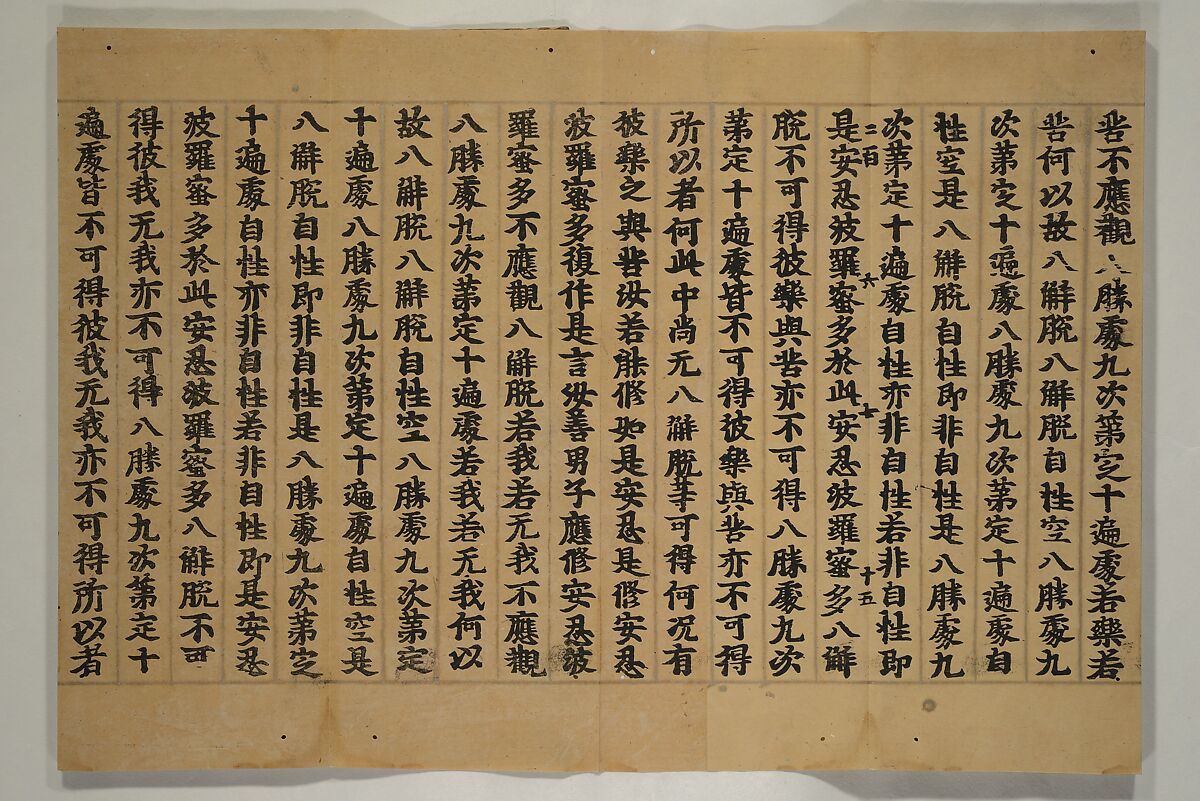 苦不應觀八勝處九次第定十遍處若樂若
苦何以故八解脫八解脫自性空八勝處九
次第定十遍處八勝處九次第定十遍處自
性空是八解脫自性即非自性是八勝處九
次第定十遍處自性亦非自性若非自性即
二百 六 十五
是安忍波羅蜜多於此安忍波羅蜜多八解
脫不可得彼樂與苦亦不可得八勝處九次
第定十遍處皆不可得彼樂與苦亦不可得
所以者何此中尚无八解脫等可得何況有
彼樂之與苦汝若能修如是安忍是修安忍
波羅蜜多復作是言汝善男子應修安忍波
羅蜜多不應觀八解脫若我若无我不應觀
八勝處九次第定十遍處若我若无我何以
故八解脫八解脫自性空八勝處九次第定
十遍處八勝處九次第定十遍處自性空是
八解脫自性即非自性是八勝處九次第定
十遍處自性亦非自性若非自性即是安忍
波羅蜜多於此安忍波羅蜜多八解脫不可
得彼我无我亦不可得八勝處九次第定十
遍處皆不可得彼我无我亦不可得所以者